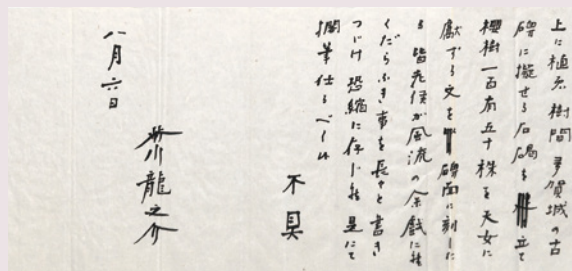 上に植ゑ樹間多賀城の古
碑に擬せる石碣を立て
櫻樹一百有五十株を天女に
獻ずる文を碑面に刻した
る 皆老侯が風流の余戯に候
くだらぬ事を長々と書き
つづけ 恐縮に存じ候 是にて
擱筆仕るべく候
不具
八月六日
芥川龍之介